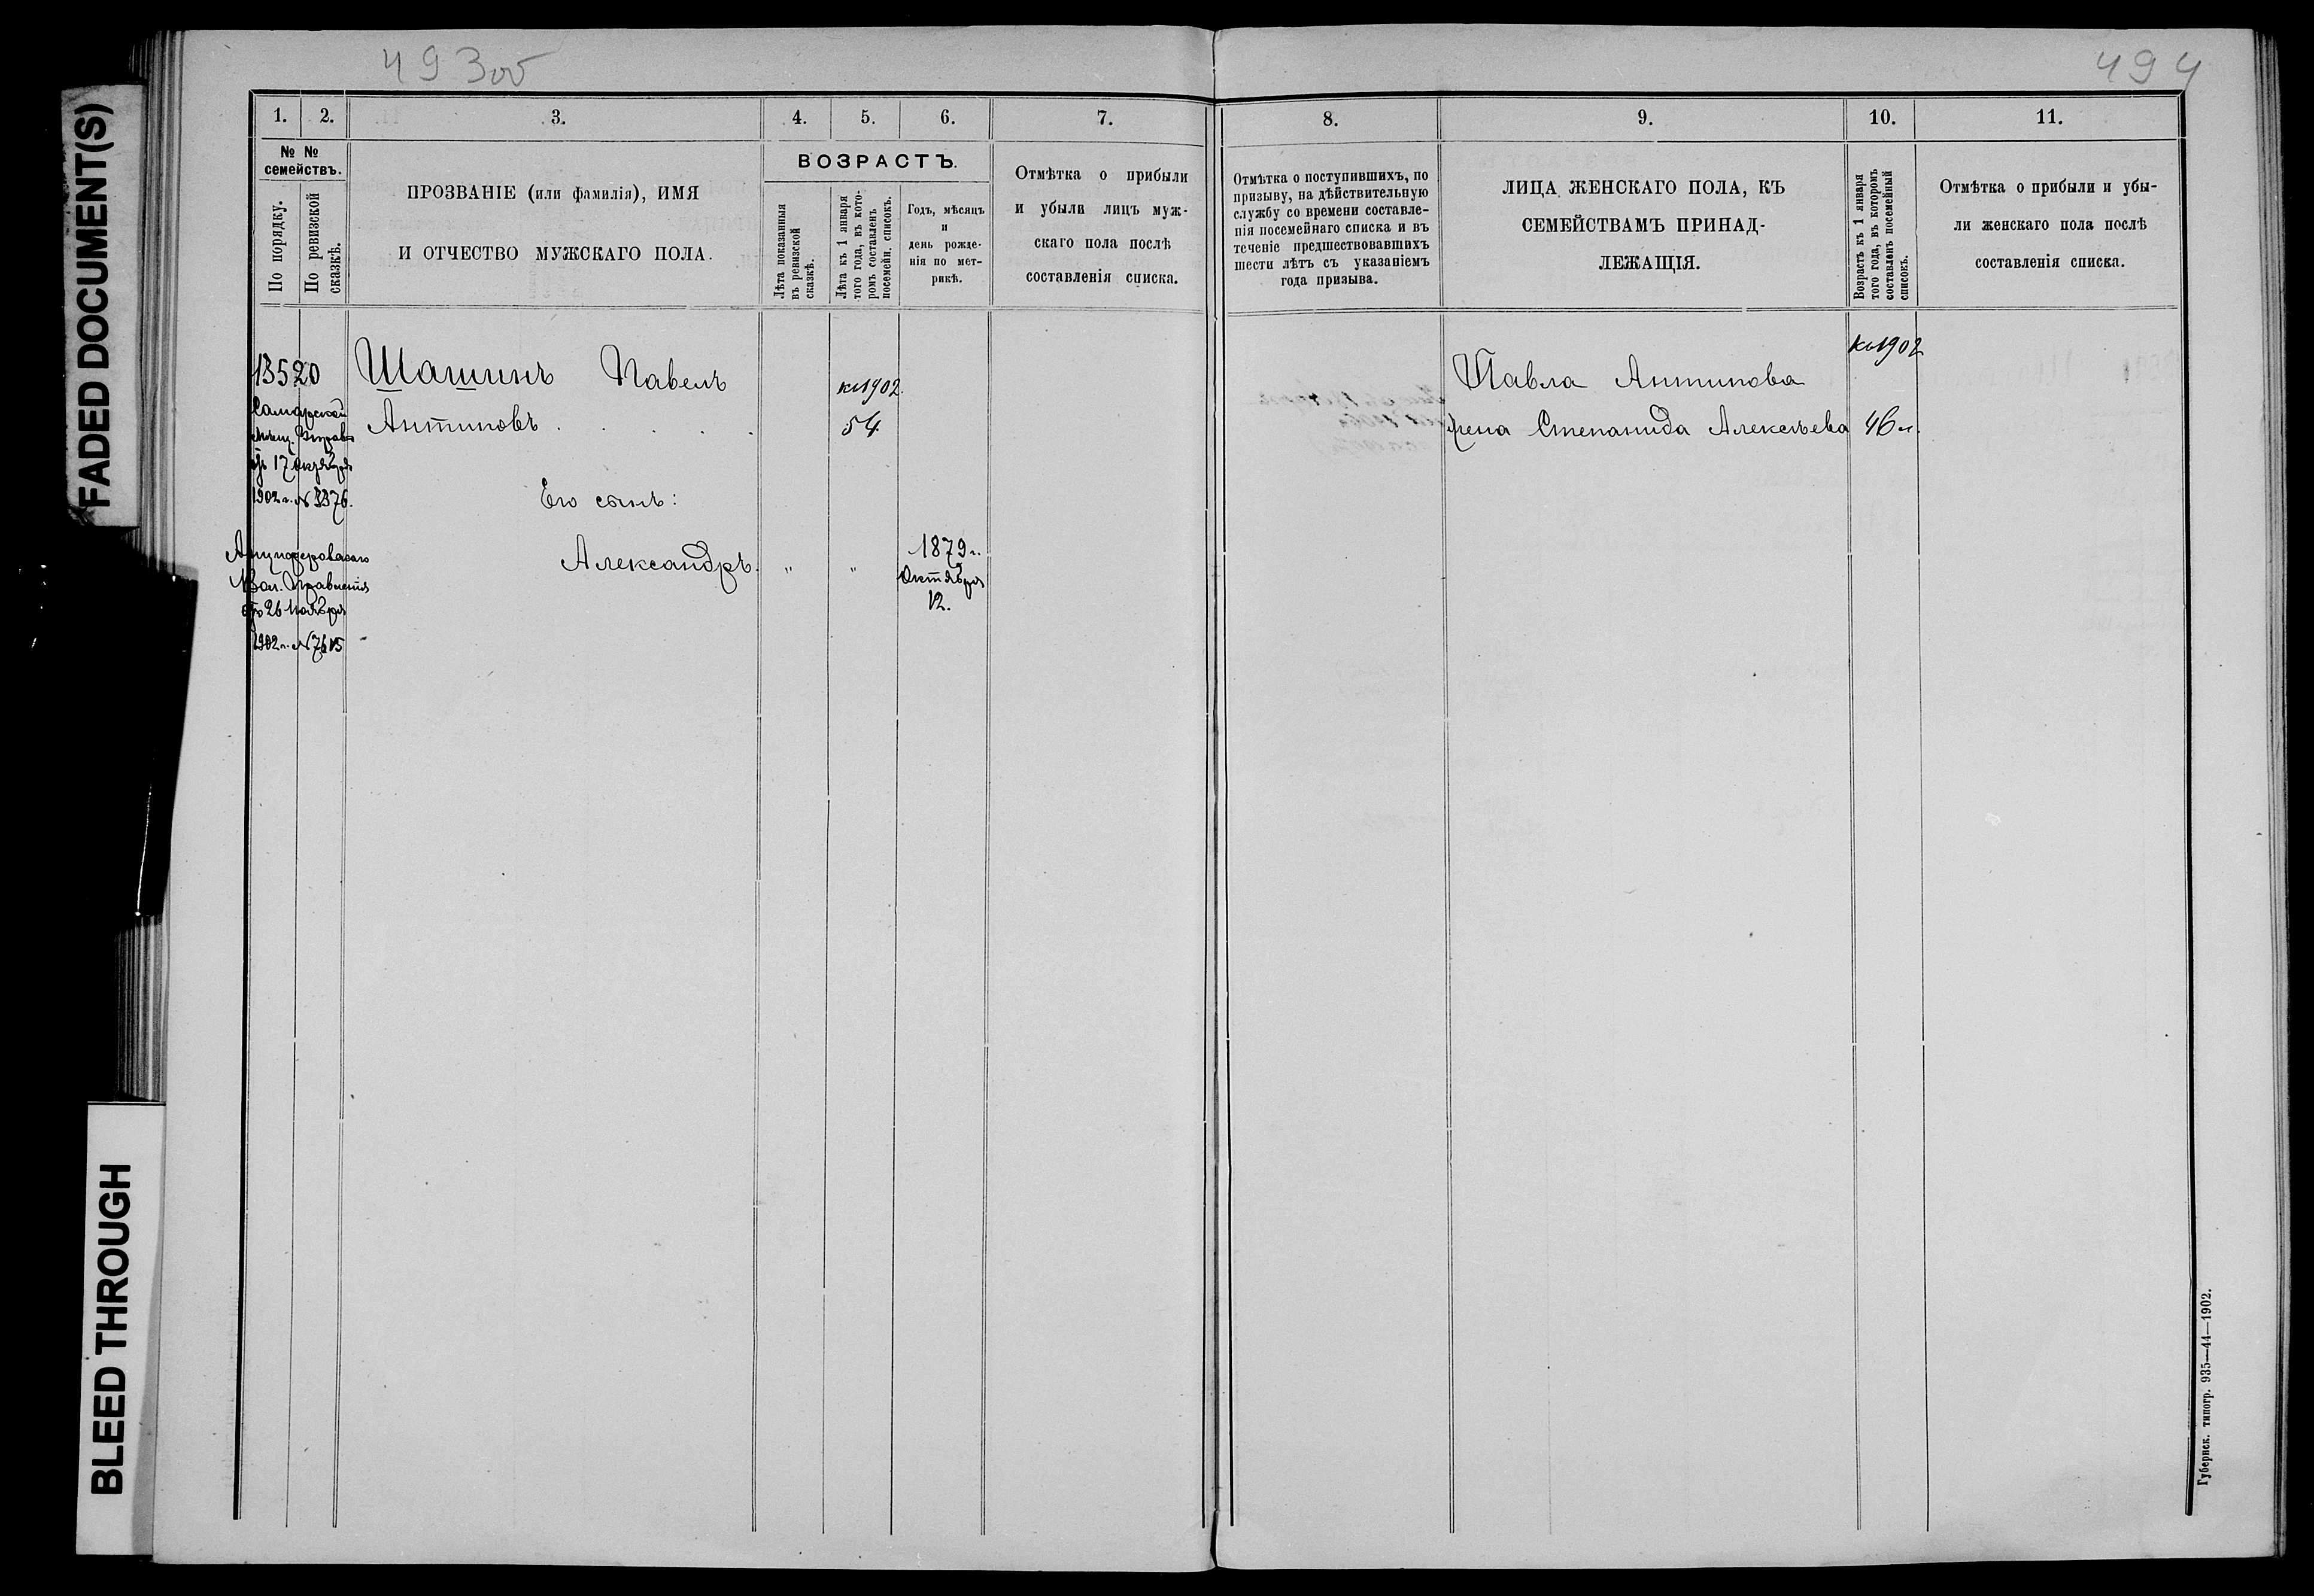 493об
494
FADED DOCUMENT(S)
BLEED THROUGH
1. 2. 3. 4. 5. 6. 7.
№ №
семействъ.
По порядку.
По ревизской
сказкѣ.
ПРОЗВАНІЕ (или фамилія), ИМЯ
И ОТЧЕСТВО МУЖСКАГО ПОЛА.
ВОЗРАСТЪ.
Лѣта показанныя
въ ревизской
сказкѣ.
Лѣта къ 1 января
того года, въ кото-
ромъ составленъ
посемейн. списокъ.
Годъ, мѣсяцъ
и
день рожде-
нія по мет-
рикѣ.
Отмѣтка о прибыли
и убыли лицъ муж-
скаго пола послѣ
составленія списка.
13520
Самарской
Мѣщ. Управы
отъ 17 Октября
1902 г. № 3376.
Вол. Правленія
отъ 26 Ноября
1902 г. № 7615
Шашинъ Павелъ
Антиповъ . . . .
къ 1902
54
Его сынъ:
Александръ. " "
1879 г.
Октября
12.
8. 9. 10. 11.
Отмѣтка о поступившихъ, по
призыву, на дѣйствительную
службу со времени составле-
нія посемейнаго списка и въ
теченіе предшествовавшихъ
шести лѣтъ съ указаніемъ
года призыва.
ЛИЦА ЖЕНСКАГО ПОЛА, КЪ
СЕМЕЙСТВАМЪ ПРИНАД-
ЛЕЖАЩІЯ.
Возрастъ къ 1 января
того года, въ которомъ
составленъ посемейный
списокъ.
Отмѣтка о прибыли и убы-
ли женскаго пола послѣ
составленія списка.
къ 1902
Павла Антипова
жена Степанида Алексѣева 46 л.
Губернск. типогр. 935—44—1902.